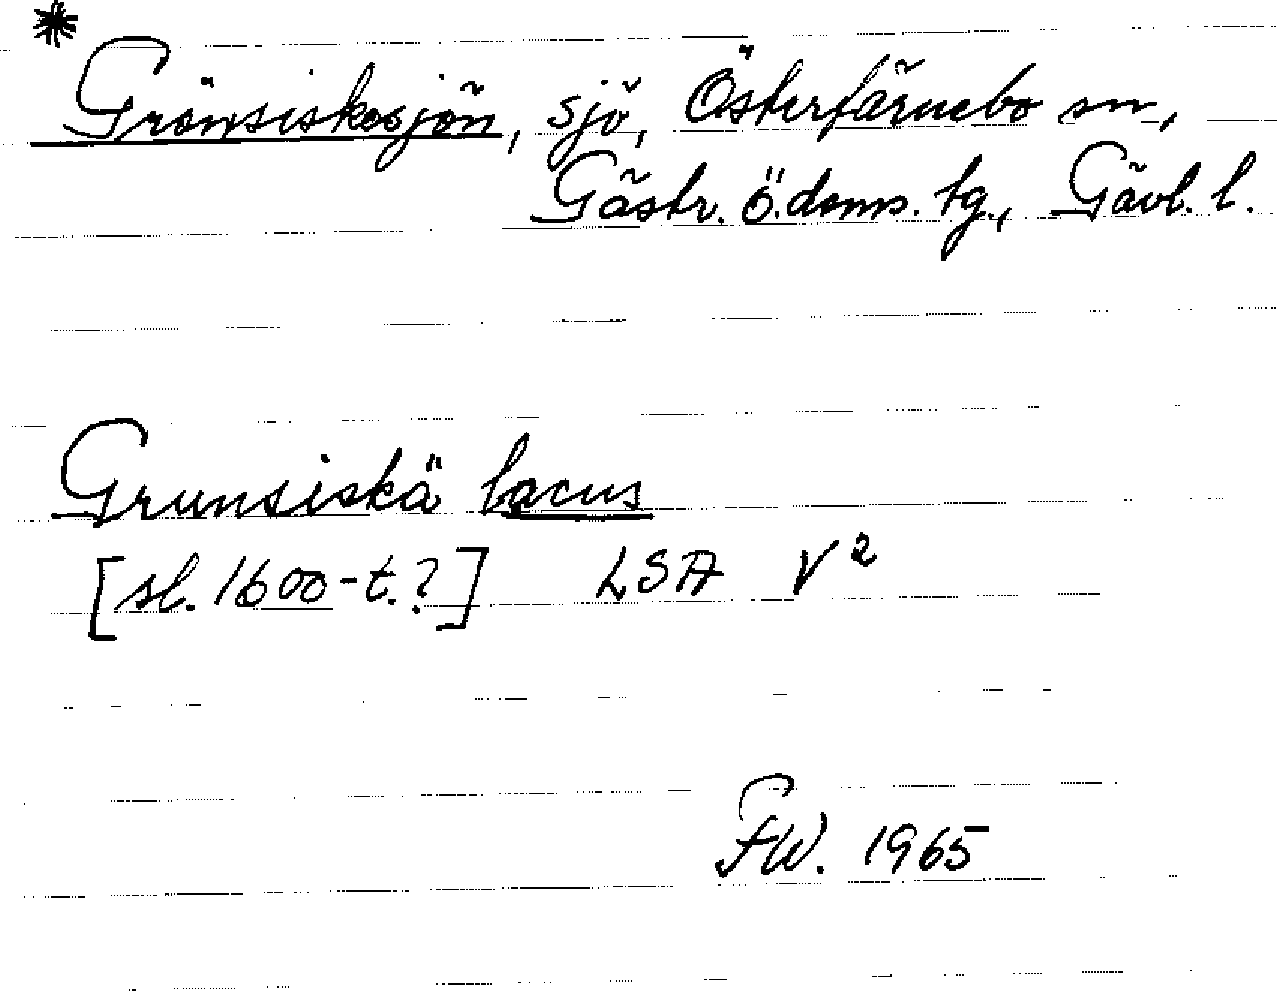 *
Grönsiskosjön, sjö, Österfärnebo sn,
Gästr. ö. doms. tg., Gävl. l.
Grunsiskä lacus
[sl. 1600-t.?] LSA V²
FW. 1965